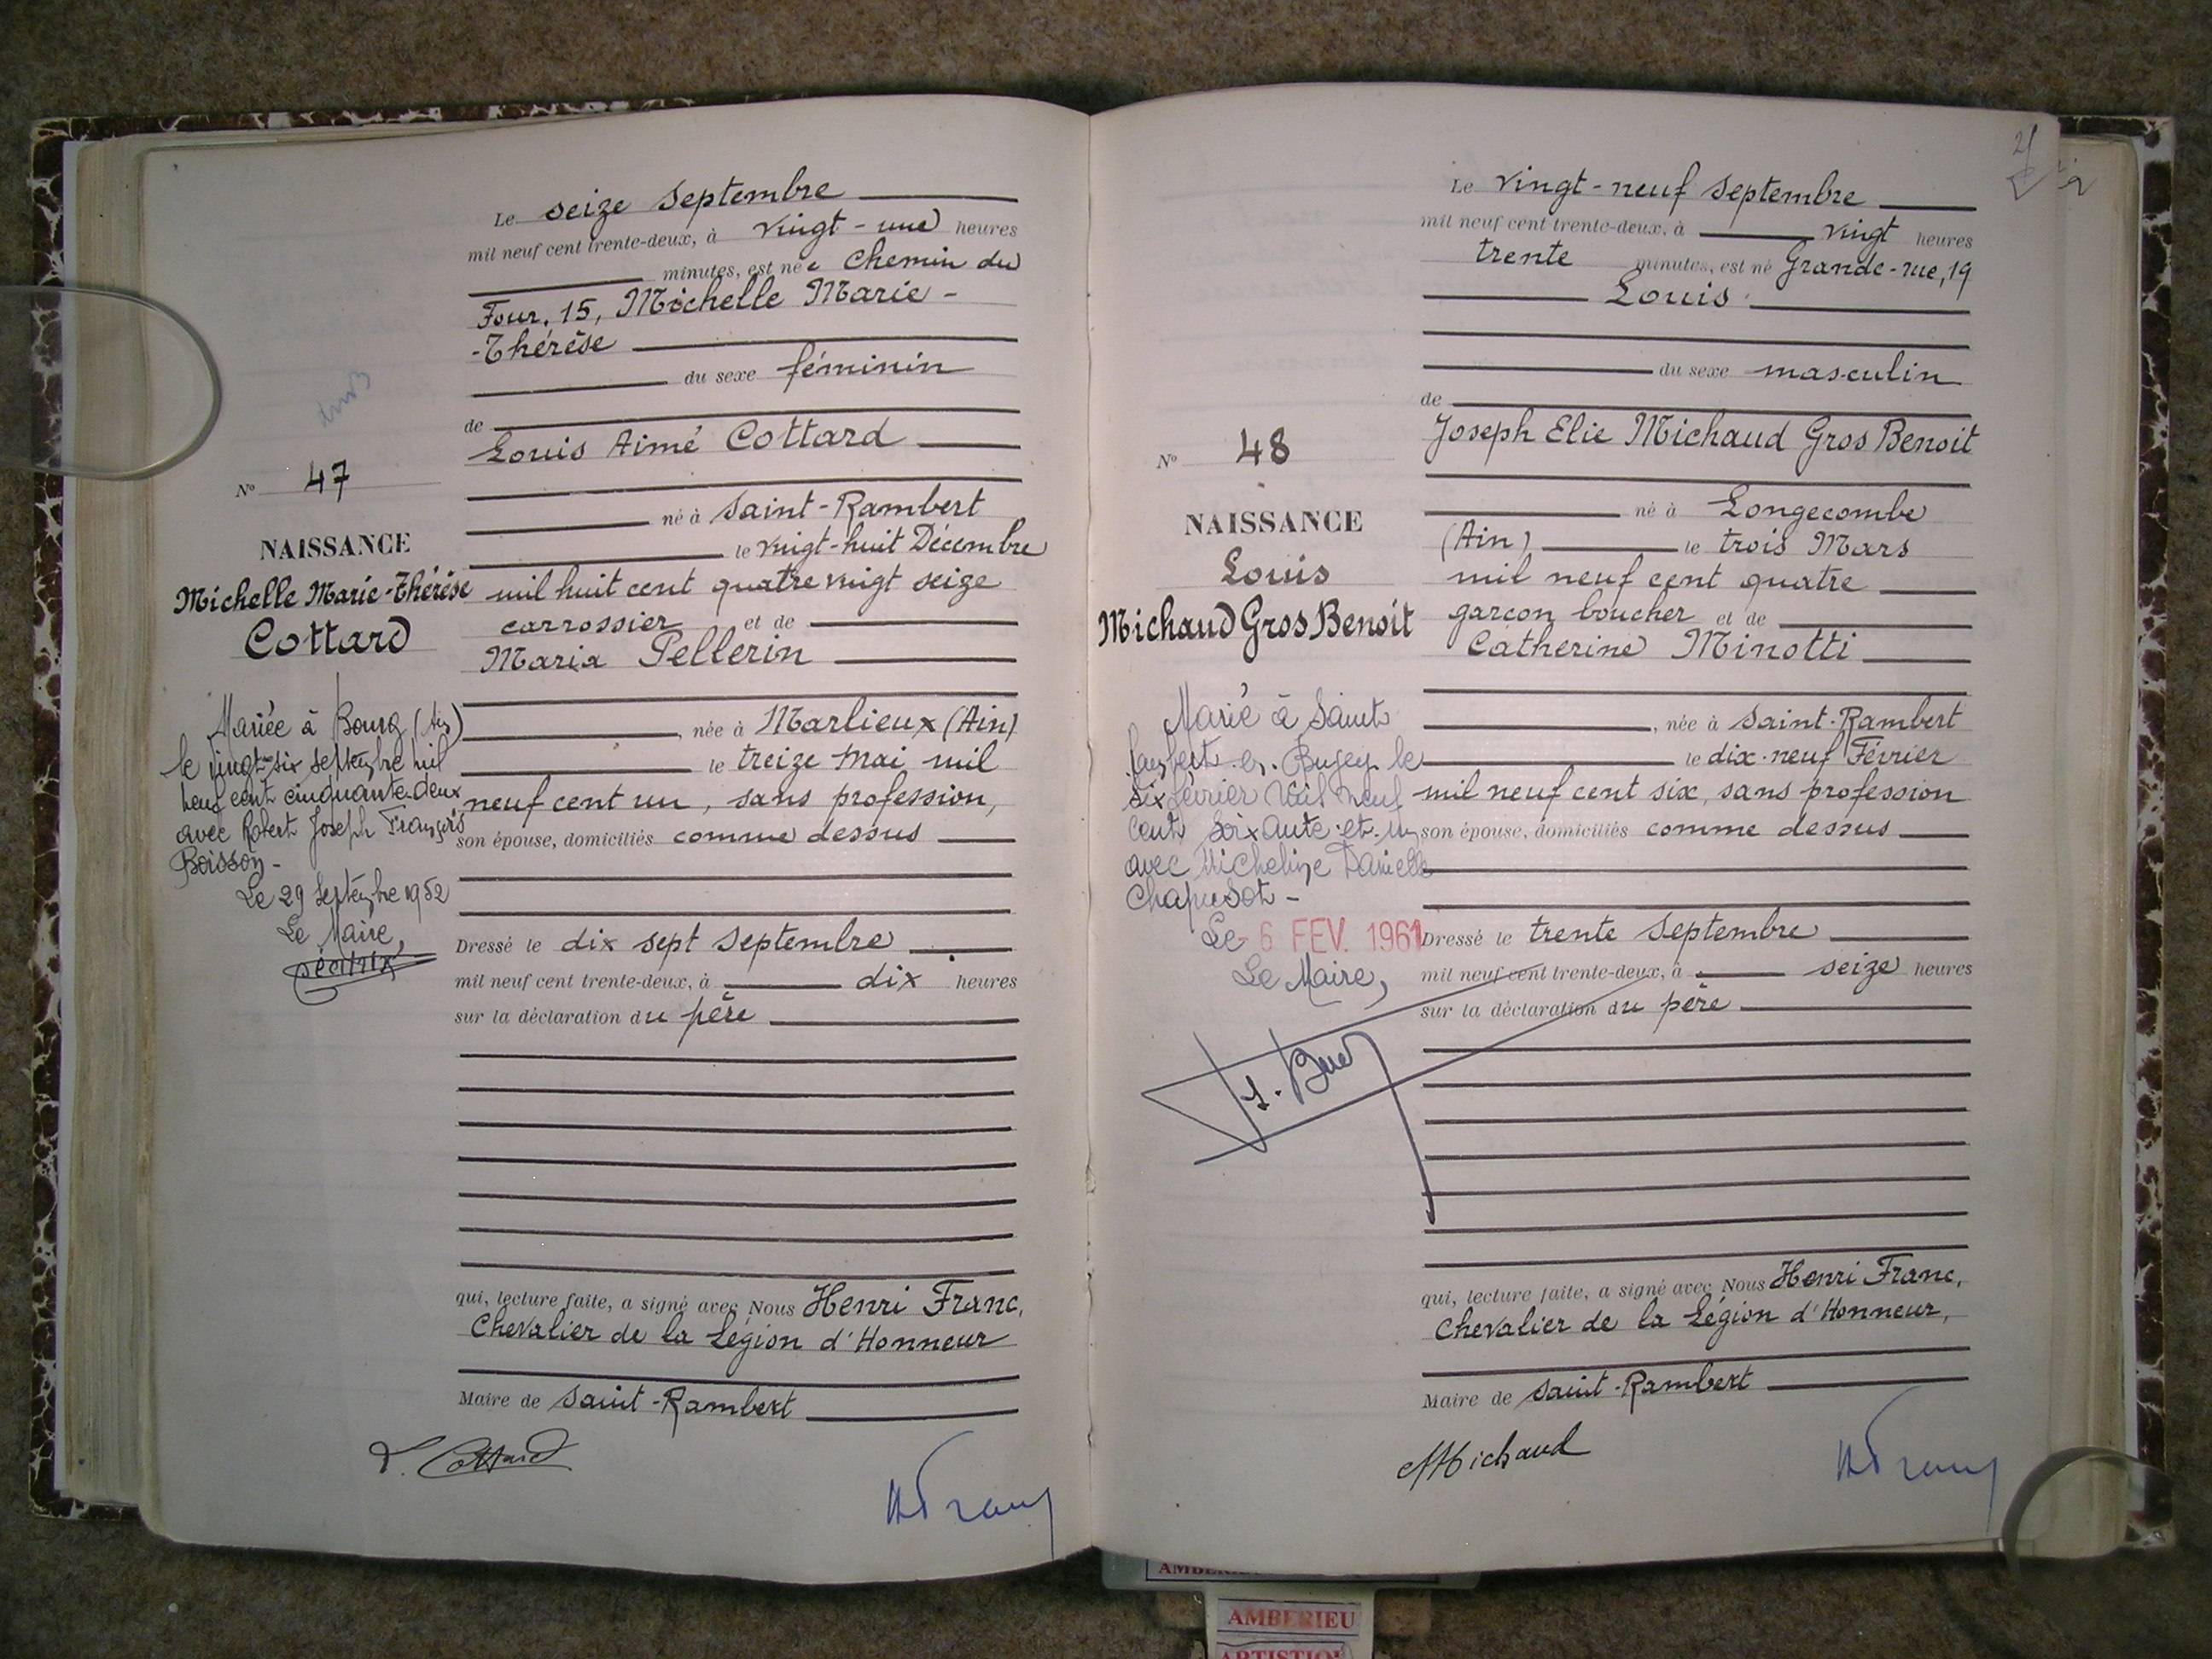 Le seize Septembre
mil neuf cent trente-deux, à vingt-une heures
minutes, est née Chemin du
Four, 15, Michelle Marie-
-Thérèse
du sexe féminin
de
Louis Aimé Cottard
né à Saint-Rambert
le vingt-huit Décembre
mil huit cent quatre vingt seize
carrossier et de
Maria Pellerin
, née à Marlieux (Ain)
le treize mai mil
neuf cent un, sans profession,
son épouse, domiciliés comme dessus
Dressé le dix sept Septembre
mil neuf cent trente-deux, à dix heures
sur la déclaration du père
qui, lecture faite, a signé avec Nous Henri Franc,
Chevalier de la Légion d'Honneur
Maire de Saint-Rambert
L. Cottard
HFranc
No 47
NAISSANCE
Michelle Marie-Thérèse
Cottard
Mariée à Bourg (Ain)
le vingt-six septembre mil
neuf cent cinquante-deux
avec Robert Joseph François
Boisson-
Le 29 Septembre 1952
Le Maire,
Le vingt-neuf Septembre
mil neuf cent trente-deux, à vingt heures
trente minutes, est né Grande-rue, 19
Louis
du sexe masculin
de
Joseph Elie Michaud Gros Benoit
né à Longecombe
(Ain) le trois Mars
mil neuf cent quatre
garçon boucher et de
Catherine Minotti
, née à Saint-Rambert
le dix-neuf Février
mil neuf cent six, sans profession
son épouse, domiciliés comme dessus
Dressé le trente Septembre
mil neuf cent trente-deux, à seize heures
sur la déclaration du père
qui, lecture faite, a signé avec Nous Henri Franc,
Chevalier de la Légion d'Honneur,
Maire de Saint-Rambert
Michaud
HFranc
No 48
NAISSANCE
Louis
Michaud Gros Benoit
Marié à Saint
Rambert-en-Bugey le
six février mil neuf
cent soixante-et-un
avec Micheline Danielle
Chapusot-
Le 6 FEV. 1961
Le Maire,
AMBERIEU